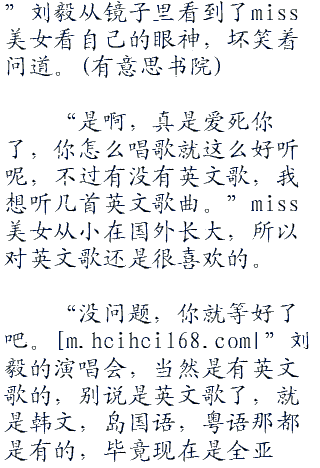 ”刘毅从镜子里看到了miss
美女看自己的眼神，坏笑着
问道。(有意思书院)
“是啊，真是爱死你
了，你怎么唱歌就这么好听
呢，不过有没有英文歌，我
想听几首英文歌曲。”miss
美女从小在国外长大，所以
对英文歌还是很喜欢的。
“没问题，你就等好了
吧。[m.hcihci168.com|”刘
毅的演唱会，当然是有英文
歌的，别说是英文歌了，就
是韩文，岛国语，粤语那都
是有的，毕竟现在是全亚